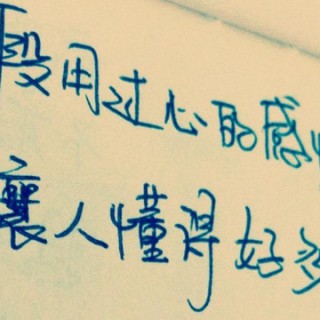 段用过心的感
讓人懂得好多